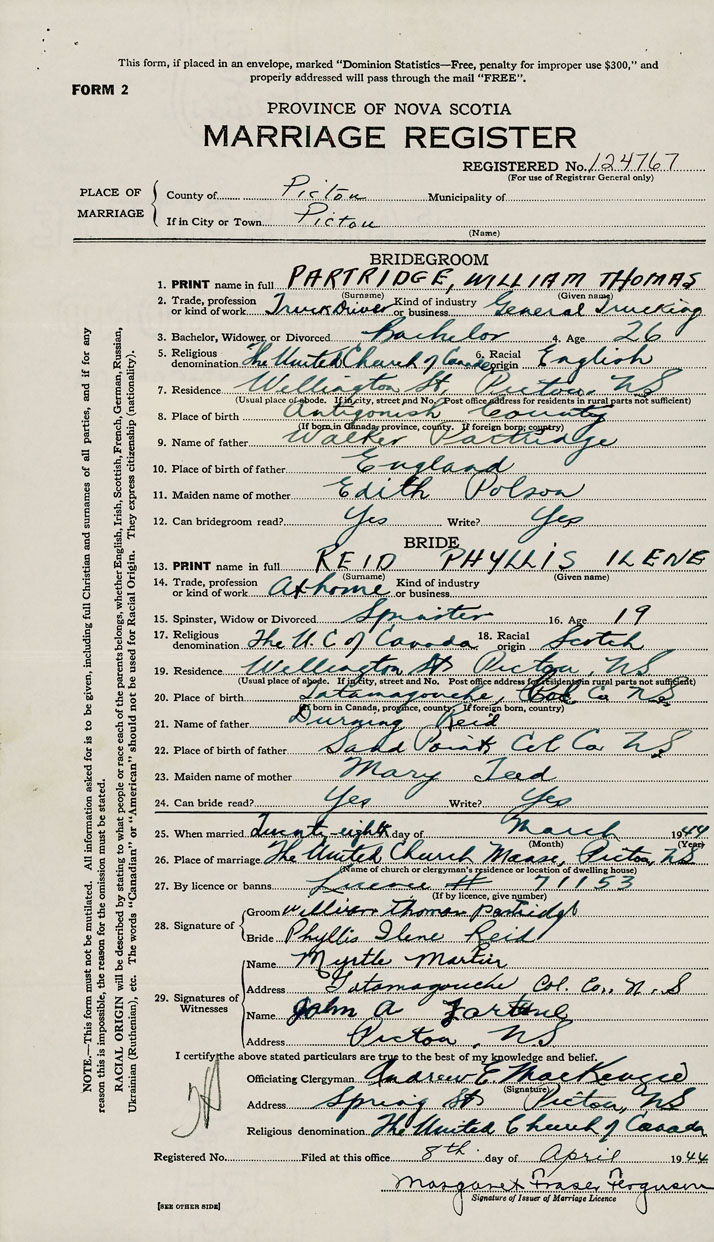 This form, if placed in an envelope, marked "Dominion Statistics—Free, penalty for improper use $300," and
properly addressed will pass through the mail "FREE".
FORM 2
PROVINCE OF NOVA SCOTIA
MARRIAGE REGISTER
REGISTERED No. 124767
(For use of Registrar General only)
PLACE OF MARRIAGE
County of Pictou Municipality of
If in City or Town Pictou
(Name)
BRIDEGROOM
1. PRINT name in full PARTRIDGE, WILLIAM THOMAS
(Surname) (Given name)
2. Trade, profession or kind of work Truck Driver Kind of industry or business General Trucking
3. Bachelor, Widower or Divorced Bachelor 4. Age 26
5. Religious denomination The United Church of Canada 6. Racial origin English
7. Residence Wellington St. Pictou, NS
(Usual place of abode. If in city, street and No. Post office address for residents in rural parts not sufficient)
8. Place of birth Antigonish County
(If born in Canada, province, county. If foreign born, country)
9. Name of father Walker Partridge
10. Place of birth of father England
11. Maiden name of mother Edith Polson
12. Can bridegroom read? Yes Write? Yes
BRIDE
13. PRINT name in full REID PHYLLIS ILENE
(Surname) (Given name)
14. Trade, profession or kind of work At home Kind of industry or business
15. Spinster, Widow or Divorced Spinster 16. Age 19
17. Religious denomination The U C of Canada 18. Racial origin Scotch
19. Residence Wellington St Pictou, NS
(Usual place of abode. If in city, street and No. Post office address for residents in rural parts not sufficient)
20. Place of birth Tatamagouche, Col Co NS
(If born in Canada, province, county. If foreign born, country)
21. Name of father Durning Reid
22. Place of birth of father Sand Point Col Co NS
23. Maiden name of mother Mary Teed
24. Can bride read? Yes Write? Yes
25. When married Twenty-eighth day of March 1944
(Month) (Year)
26. Place of marriage The United Church Manse, Pictou, NS
(Name of church or clergyman's residence or location of dwelling house)
27. By licence or banns Licence # 71153
(If by licence, give number)
28. Signature of
Groom William Thomas Partridge
Bride Phyllis Ilene Reid
29. Signatures of Witnesses
Name Myrtle Martin
Address Tatamagouche Col. Co., N.S
Name John A
Address Pictou, NS
I certify the above stated particulars are true to the best of my knowledge and belief.
Officiating Clergyman Andrew E MacKenzie
(Signature)
Address Spring St Pictou, NS
Religious denomination The United Church of Canada
Registered No. Filed at this office 8th day of April 1944
Margaret Fraser Ferguson
Signature of Issuer of Marriage Licence
[SEE OTHER SIDE]
NOTE.—This form must not be mutilated. All information asked for is to be given, including full Christian and surnames of all parties, and if for any
reason this is impossible, the reason for the omission must be stated.
RACIAL ORIGIN will be described by stating to what people or race each of the parents belongs, whether English, Irish, Scottish, French, German, Russian,
Ukrainian (Ruthenian), etc. The words "Canadian" or "American" should not be used for Racial Origin. They express citizenship (nationality).